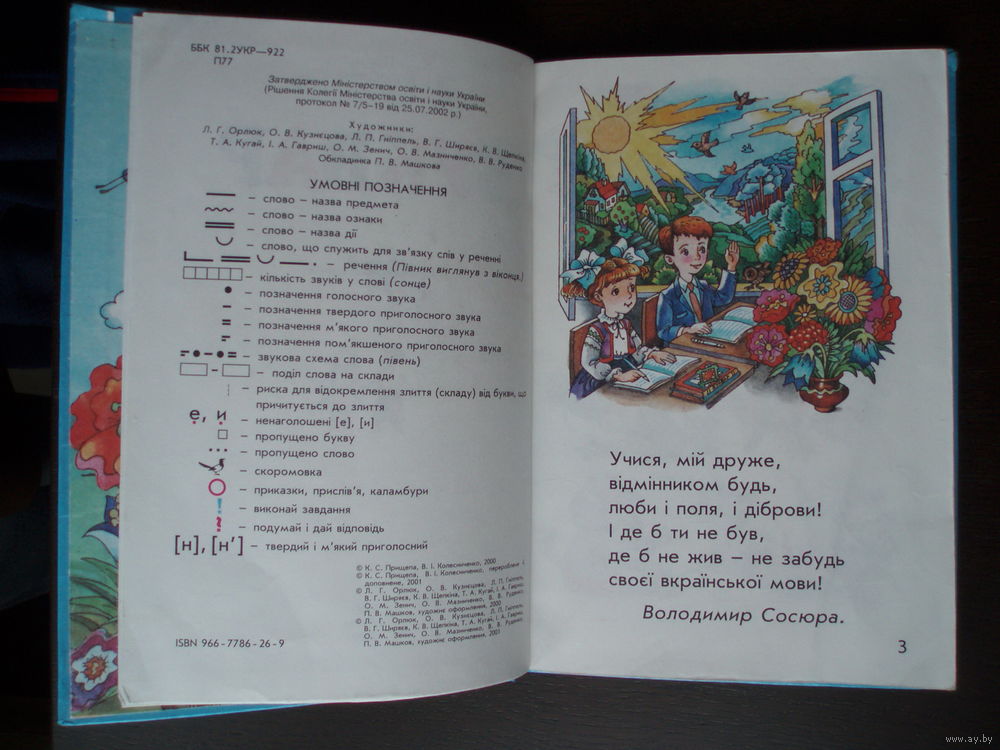 ББК 81.2УКР—922
П77
Затверджено Міністерством освіти і науки України
(Рішення Колегії Міністерства освіти і науки України,
протокол № 7/5–19 від 25.07.2002 р.)
Художники:
Л. Г. Орлюк, О. В. Кузнєцова, Л. П. Гніппель, В. Г. Ширяєв, К. В. Щепкіна,
Т. А. Кугай, І. А. Гавриш, О. М. Зенич, О. В. Мазниченко, В. В. Руденко
Обкладинка П. В. Машкова
УМОВНІ ПОЗНАЧЕННЯ
– слово – назва предмета
– слово – назва ознаки
– слово – назва дії
– слово, що служить для зв'язку слів у реченні
– речення (Півник виглянув з віконця.)
– кількість звуків у слові (сонце)
– позначення голосного звука
– позначення твердого приголосного звука
– позначення м'якого приголосного звука
– позначення пом'якшеного приголосного звука
– звукова схема слова (півень)
– поділ слова на склади
– риска для відокремлення злиття (складу) від букви, що
причитується до злиття
е, и – ненаголошені [е], [и]
– пропущено букву
... – пропущено слово
– скоромовка
– приказки, прислів'я, каламбури
! – виконай завдання
? – подумай і дай відповідь
[н], [н'] – твердий і м'який приголосний
© К. С. Прищепа, В. І. Колесниченко, 2000
© К. С. Прищепа, В. І. Колесниченко, перероблене і
доповнене, 2001
© Л. Г. Орлюк, О. В. Кузнєцова, Л. П. Гніппель,
В. Г. Ширяєв, К. В. Щепкіна, Т. А. Кугай, І. А. Гавриш,
О. М. Зенич, О. В. Мазниченко, В. В. Руденко,
П. В. Машков, художнє оформлення, 2000
© Л. Г. Орлюк, О. В. Кузнєцова, Л. П. Гніппель,
В. Г. Ширяєв, К. В. Щепкіна, Т. А. Кугай, І. А. Гавриш,
О. М. Зенич, О. В. Мазниченко, В. В. Руденко,
П. В. Машков, художнє оформлення, 2001
ISBN 966-7786-26-9
Учися, мій друже,
відмінником будь,
люби і поля, і діброви!
І де б ти не був,
де б не жив – не забудь
своєї вкраїнської мови!
Володимир Сосюра.
3
www.ay.by